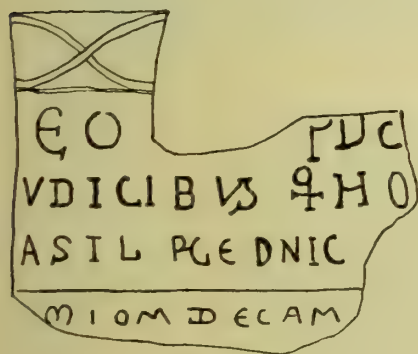 ЄO ΓVC
VDICIBVS ♀HO
ASIL PGEDNIC
MIOMDECAM